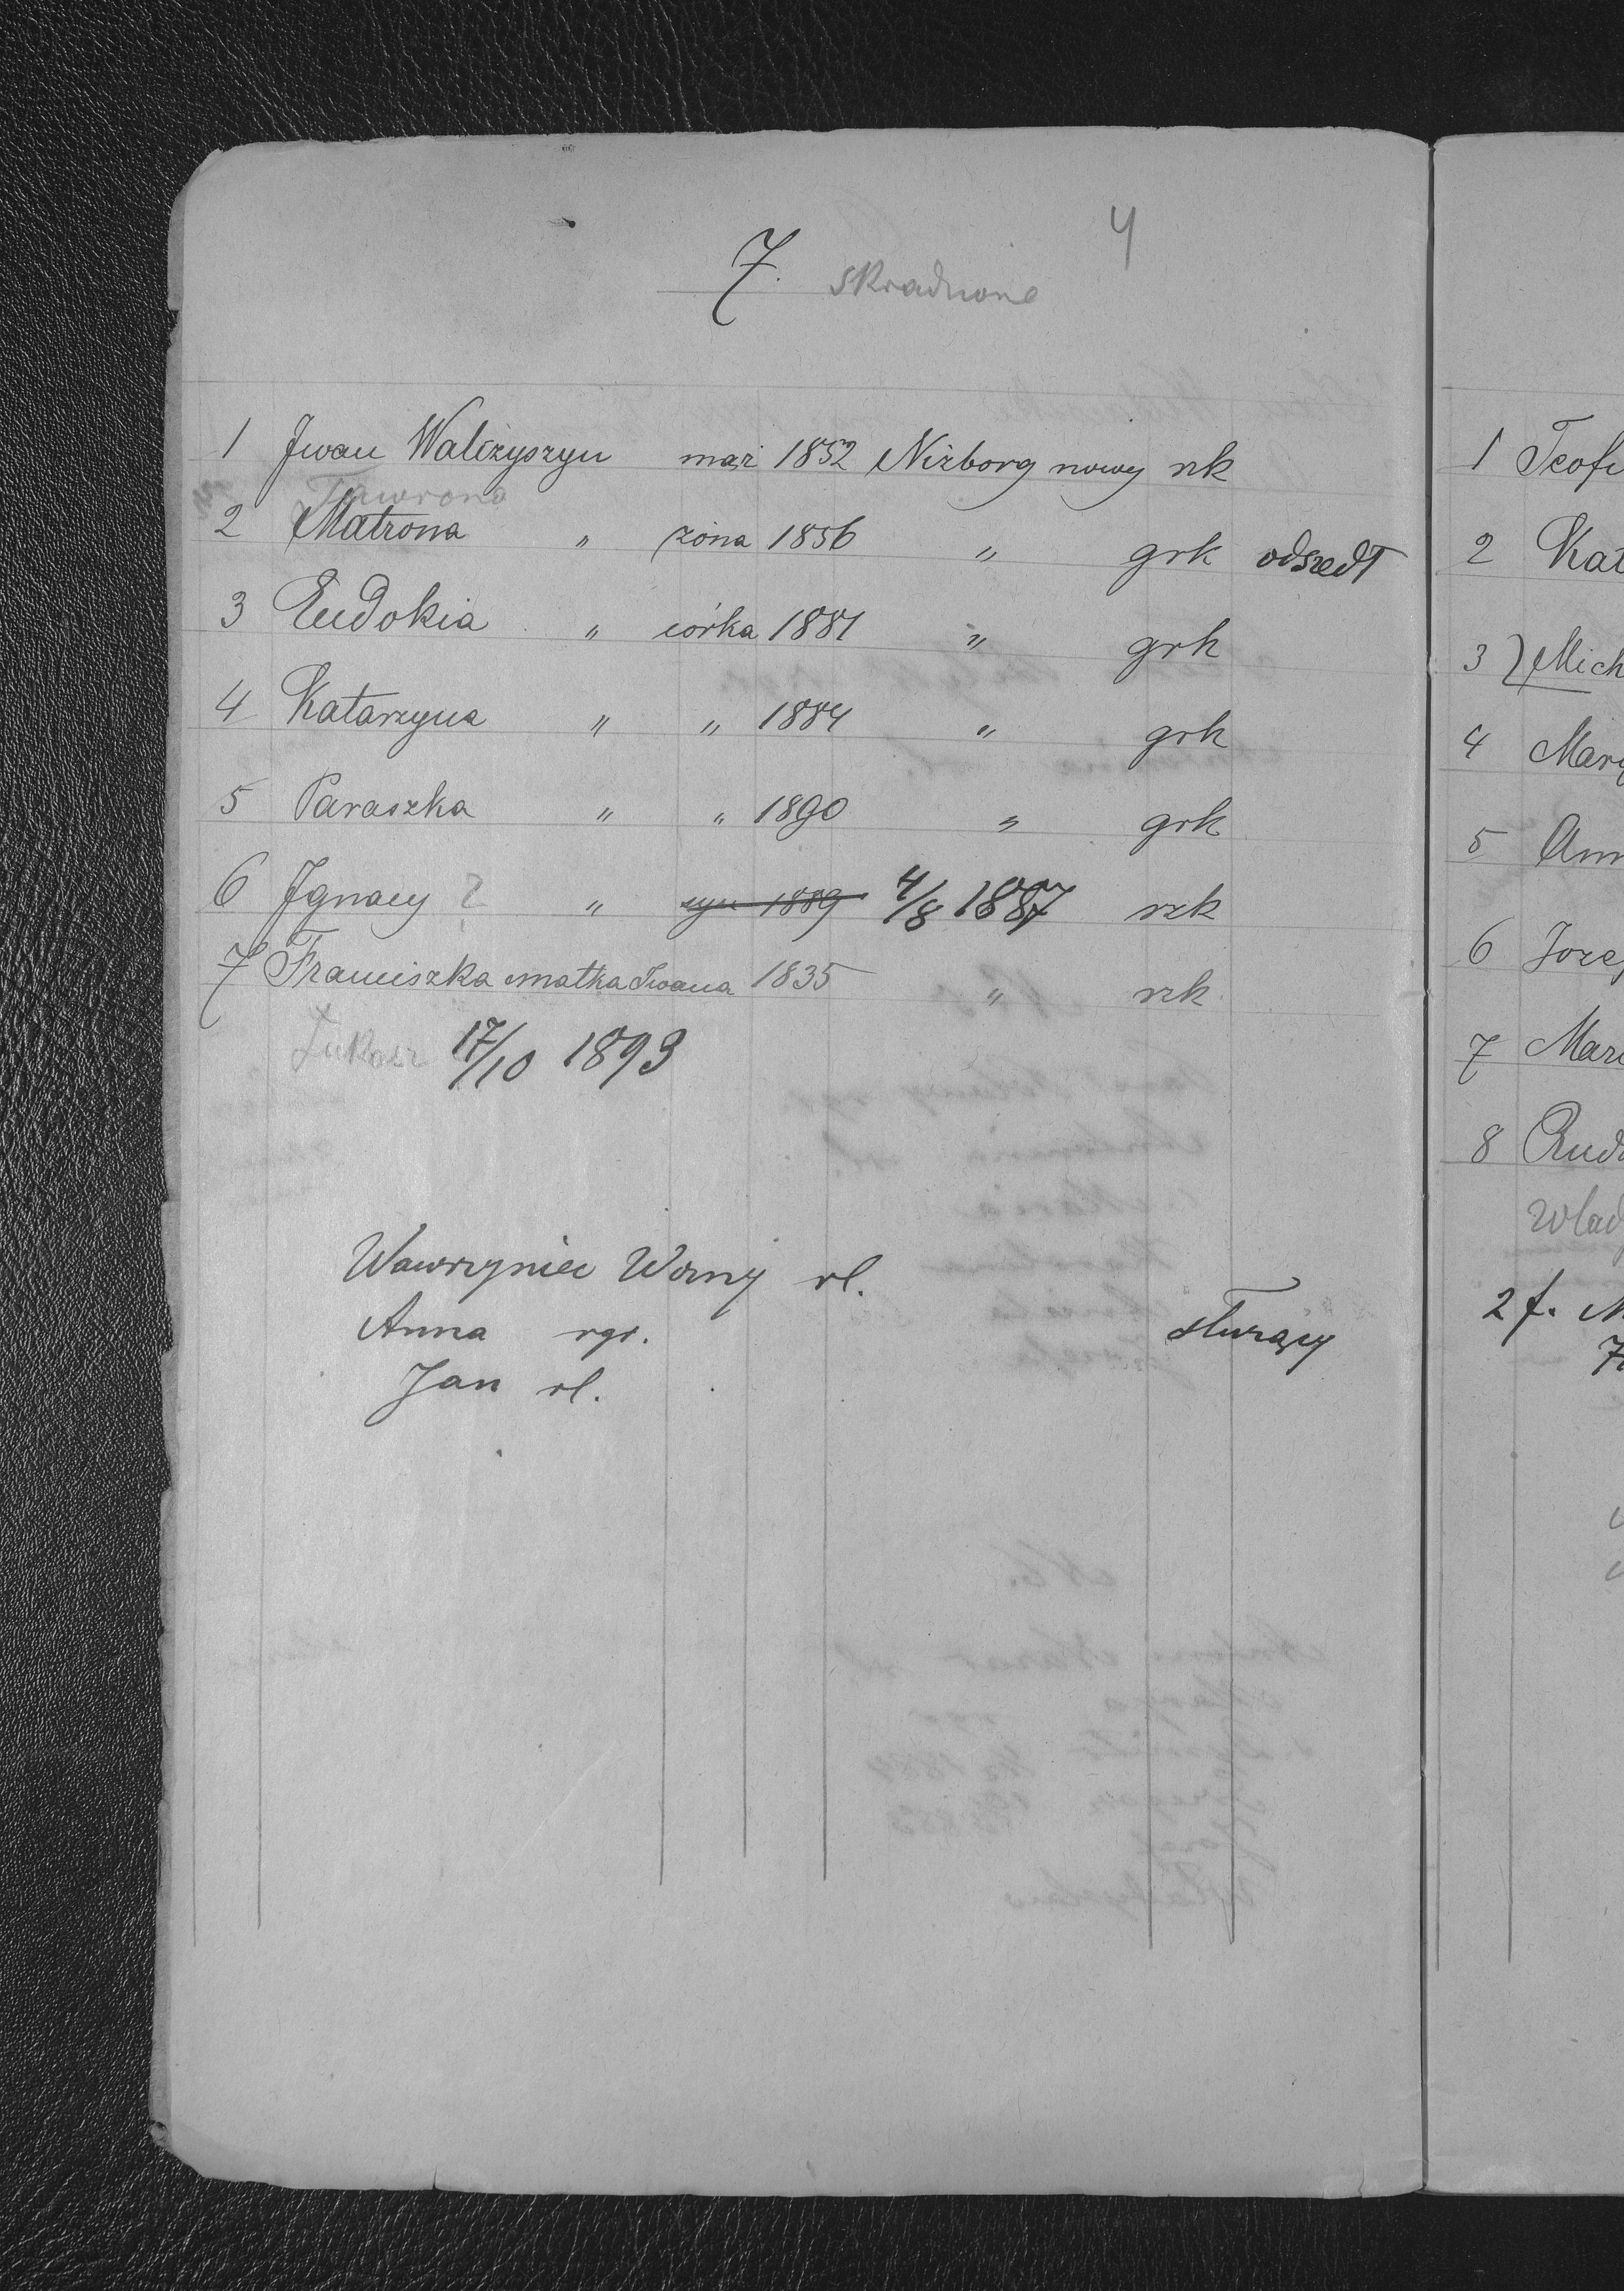 4
7. skradnione
1 Iwan Walczyszyn mąż 1852 Niżborg nowy rzk
Tawrona
2 Matrona " żona 1856 " grk odszedł
3 Eudokia " córka 1881 " grk
4 Katarzyna " " 1884 " grk
5 Paraszka " " 1890 " grk
6 Ignacy ? " syn 1889 4/8 1887 rzk
7 Franciszka matka Iwana 1835 " rzk
Łukasz 17/10 1893
Wawrzyniec Worny rl.
Anna rgr. służący
Jan rl.
1 Teofi
2 Kat
3 Mich
4 Mary
5 Ann
6 Joze
7 Mar
8 Rud
Wlad
2 f.